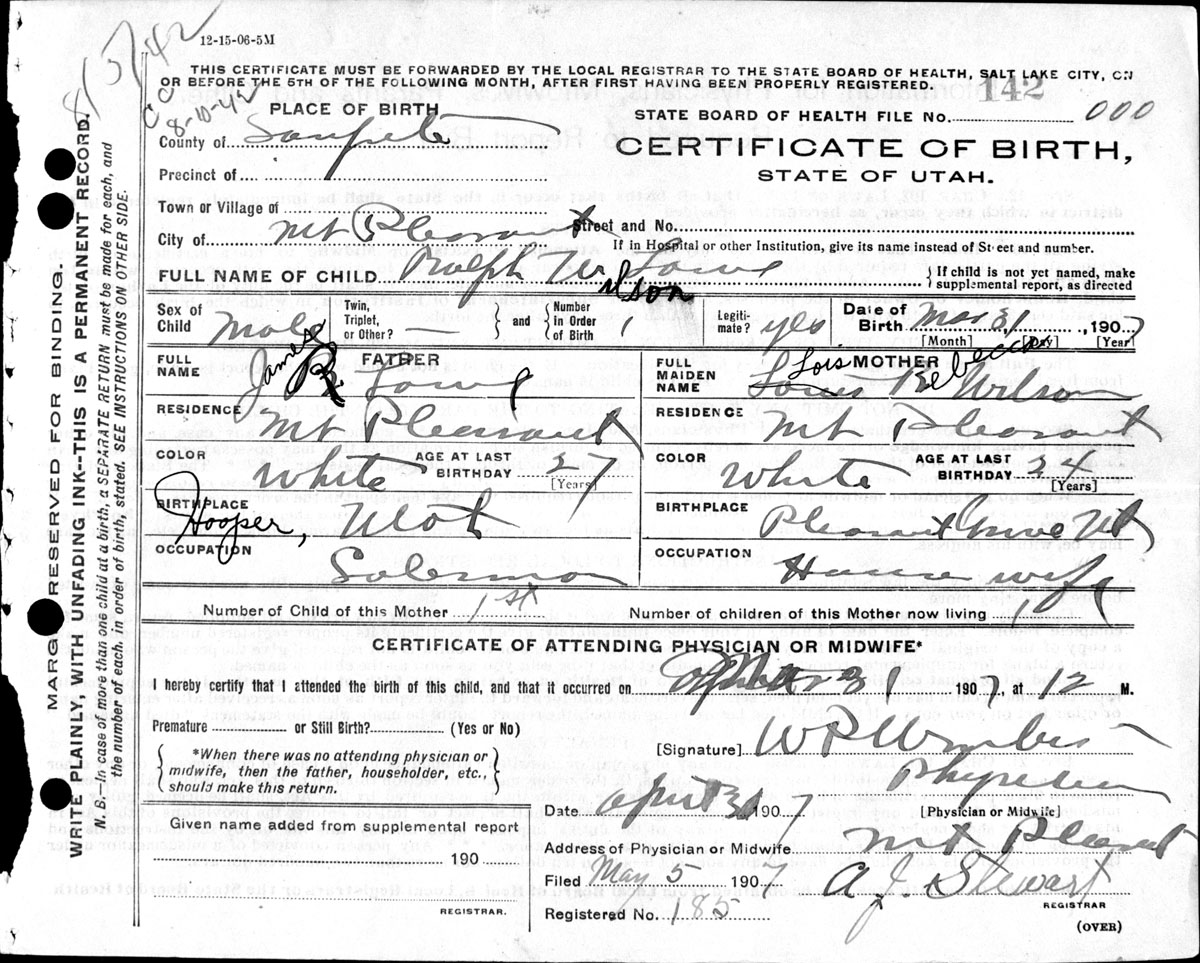 8/5/42
12-15-06-5M
THIS CERTIFICATE MUST BE FORWARDED BY THE LOCAL REGISTRAR TO THE STATE BOARD OF HEALTH, SALT LAKE CITY, ON
OR BEFORE THE 5TH OF THE FOLLOWING MONTH, AFTER FIRST HAVING BEEN PROPERLY REGISTERED.
142
CC 8-10-42
PLACE OF BIRTH
STATE BOARD OF HEALTH FILE No. 000
County of Sanpete
CERTIFICATE OF BIRTH,
Precinct of
STATE OF UTAH.
Town or Village of
City of Mt Pleasant Street and No.
If in Hospital or other Institution, give its name instead of Street and number.
FULL NAME OF CHILD Ralph Wilson Lowe { If child is not yet named, make supplemental report, as directed
Sex of Child Male Twin, Triplet, or Other? — } and { Number in Order of Birth 1 Legitimate? yes Date of Birth Mar 31, 1907
[Month] [Day] [Year]
FULL NAME FATHER James R. Lowe
FULL MAIDEN NAME MOTHER Lois Rebecca Wilson
RESIDENCE Mt Pleasant
RESIDENCE Mt Pleasant
COLOR White AGE AT LAST BIRTHDAY 27 [Years]
COLOR White AGE AT LAST BIRTHDAY 24 [Years]
BIRTHPLACE Hooper, Utah
BIRTHPLACE Pleasant Grove Ut
OCCUPATION Salesman
OCCUPATION House wife
Number of Child of this Mother 1st Number of children of this Mother now living 1
CERTIFICATE OF ATTENDING PHYSICIAN OR MIDWIFE*
I hereby certify that I attended the birth of this child, and that it occurred on Mar 31 190, at 12 M.
Premature or Still Birth? (Yes or No)
{ *When there was no attending physician or midwife, then the father, householder, etc., should make this return. }
[Signature] W P
Physician
Date April 190 7 [Physician or Midwife]
Given name added from supplemental report
190
REGISTRAR.
Address of Physician or Midwife Mt Pleasant
Filed May 5 1907 A. J. Stewart
REGISTRAR
Registered No. 185
(OVER)
MARGIN RESERVED FOR BINDING.
WRITE PLAINLY, WITH UNFADING INK--THIS IS A PERMANENT RECORD.
N. B.—In case of more than one child at a birth, a SEPARATE RETURN must be made for each, and
the number of each, in order of birth, stated. SEE INSTRUCTIONS ON OTHER SIDE.